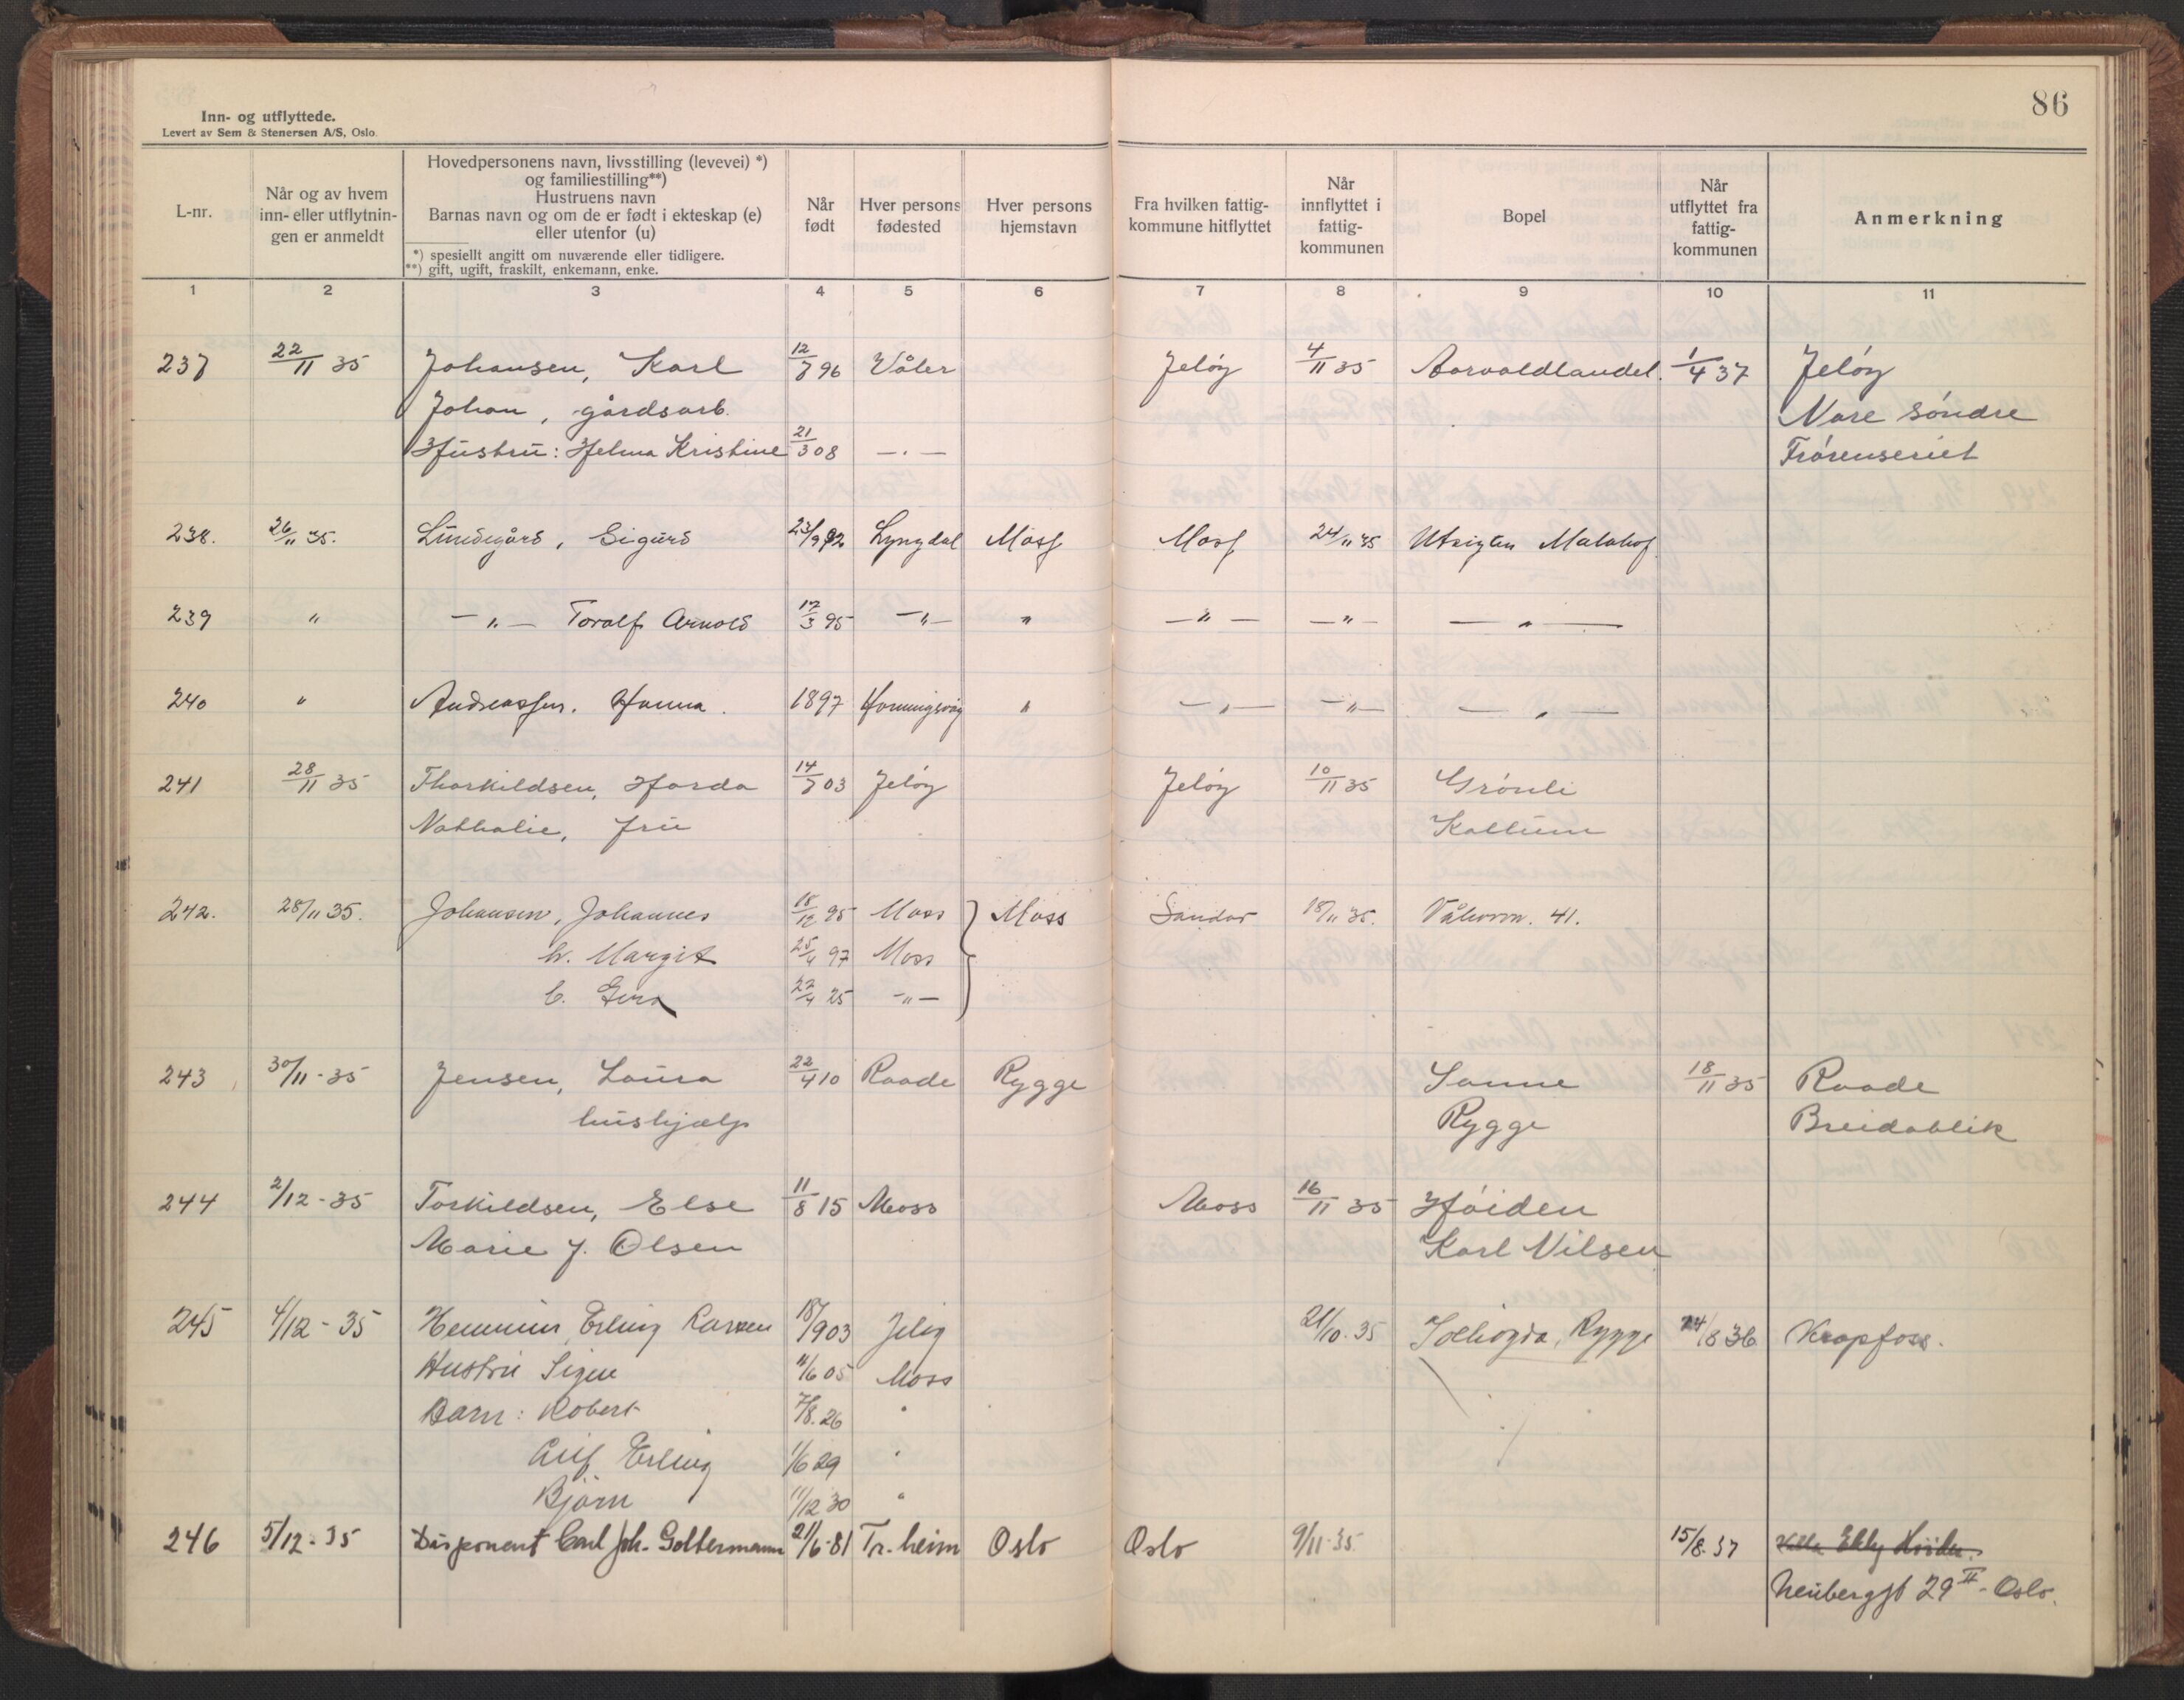 86
Inn- og utflyttede.
Levert av Sem & Stenersen A/S, Oslo.
L-nr.
Når og av hvem
inn- eller utflytnin-
gen er anmeldt
Hovedpersonens navn, livsstilling (levevei) *)
og familiestilling**)
Hustruens navn
Barnas navn og om de er født i ekteskap (e)
eller utenfor (u)
*) spesielt angitt om nuværende eller tidligere.
**) gift, ugift, fraskilt, enkemann, enke.
Når
født
Hver persons
fødested
Hver persons
hjemstavn
Fra hvilken fattig-
kommune hitflyttet
Når
innflyttet i
fattig-
kommunen
Bopel
Når
utflyttet fra
fattig-
kommunen
Anmerkning
1 2 3 4 5 6 7 8 9 10 11
237 22/11 35 Johansen, Karl 12/7 96 Våler Jeløy 4/11 35 Aarvoldlandet. 1/4 37 Jeløy
Johan, gårdsarb. Nore søndre
Hustru: Helma Kristine 21/3 08 —·— Frørenseriet
238. 26/11 35. Lundegård, Sigurd 23/9 92 Lyngdal Moss Moss 24/11 35
239 " —"— Toralf Arnold 17/3 95 —"— " —"— —"— —"—
240 " Andreassen. Hanna. 1897 Honningsvåg " —"— —"— —"—
241 28/11 35 Thorkildsen, Harda 14/7 03 Jeløy Jeløy 10/11 35 Grønli
Nathalie, fru Kallum
242. 28/11 35. Johansen, Johannes 18/12 95 Moss Moss Sandar 18/11 35. 41.
h. Margit 25/4 97 Moss
b. 22/4 25 —"—
243 30/11-35 Jensen, Laura 22/4 10 Raade Rygge Sanne 18/11 35 Raade
hushjælp Rygge Breidablik
244 2/12-35 Torkildsen, Else 11/8 15 Moss Moss 16/11 35 Høiden
Marie f. Olsen Karl Nilsen
245 4/12-35 Erling 18/9 03 Jeløy 21/10.35 Solhøgda, Rygge 24/8 36 Krapfoss.
Hustru Signe 11/6 05 Moss
Barn: Robert 7/8.26 "
Leif Erling 1/6 29 "
Bjørn 11/12 30 "
246 5/12-35 Disponent Carl Joh. Goltermann 21/6-81 Tr.heim Oslo Oslo 9/11-35 15/8-37 Villa Elly Høiden.
Neubergst 29 II - Oslo.